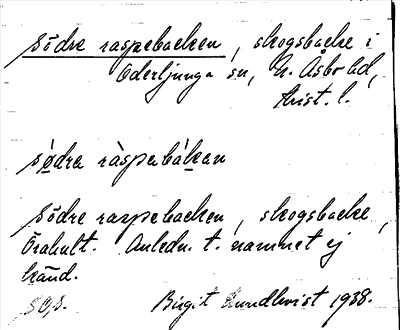 södre raspebacken, skogsbacke i
Oderljunga sn, N. Åsbo hd,
Krist. l.
södra ràspebákan
södre raspebacken, skogsbacke,
Örahult. Anledn. t. namnet ej
känd.
Birgit Lundkvist 1938.